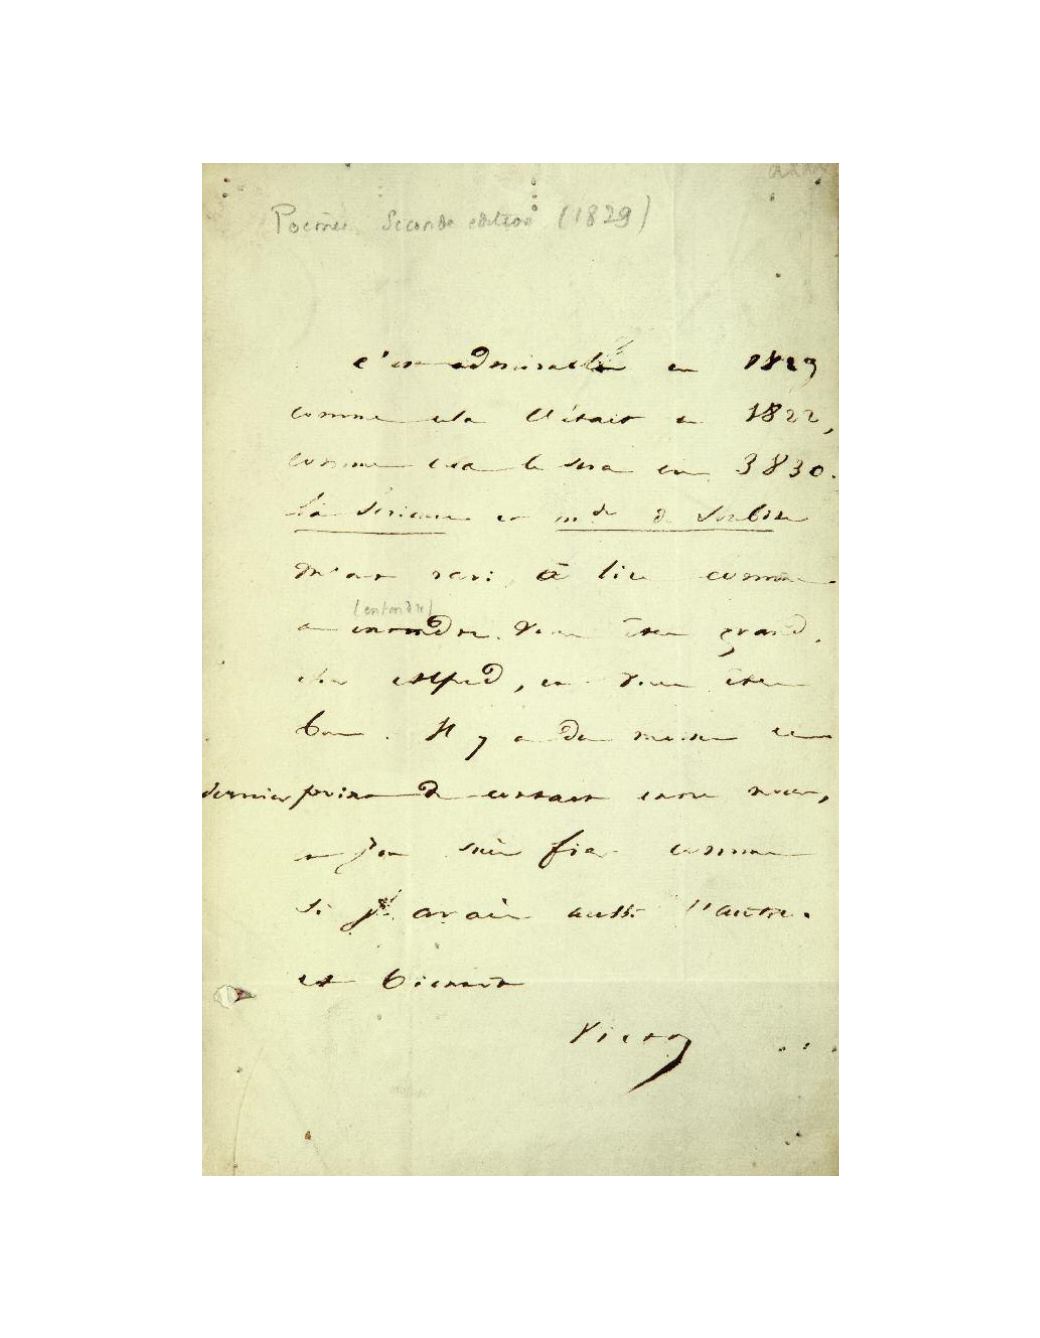 Poèmes Seconde edition (1829)
c'est admirable en 1829
comme cela l'était en 1822,
comme cela le sera en 3830.
La Sérieuse et Mde de Soubise
m'ont ravi à lire comme
(entendre)
à entendre. Vous êtes grand,
cher Alfred, et vous êtes
bon. Il y a du moins ce
dernier point de contact entre nous,
et j'en suis fier comme
si j'avais aussi l'autre.
et bientôt
Victor